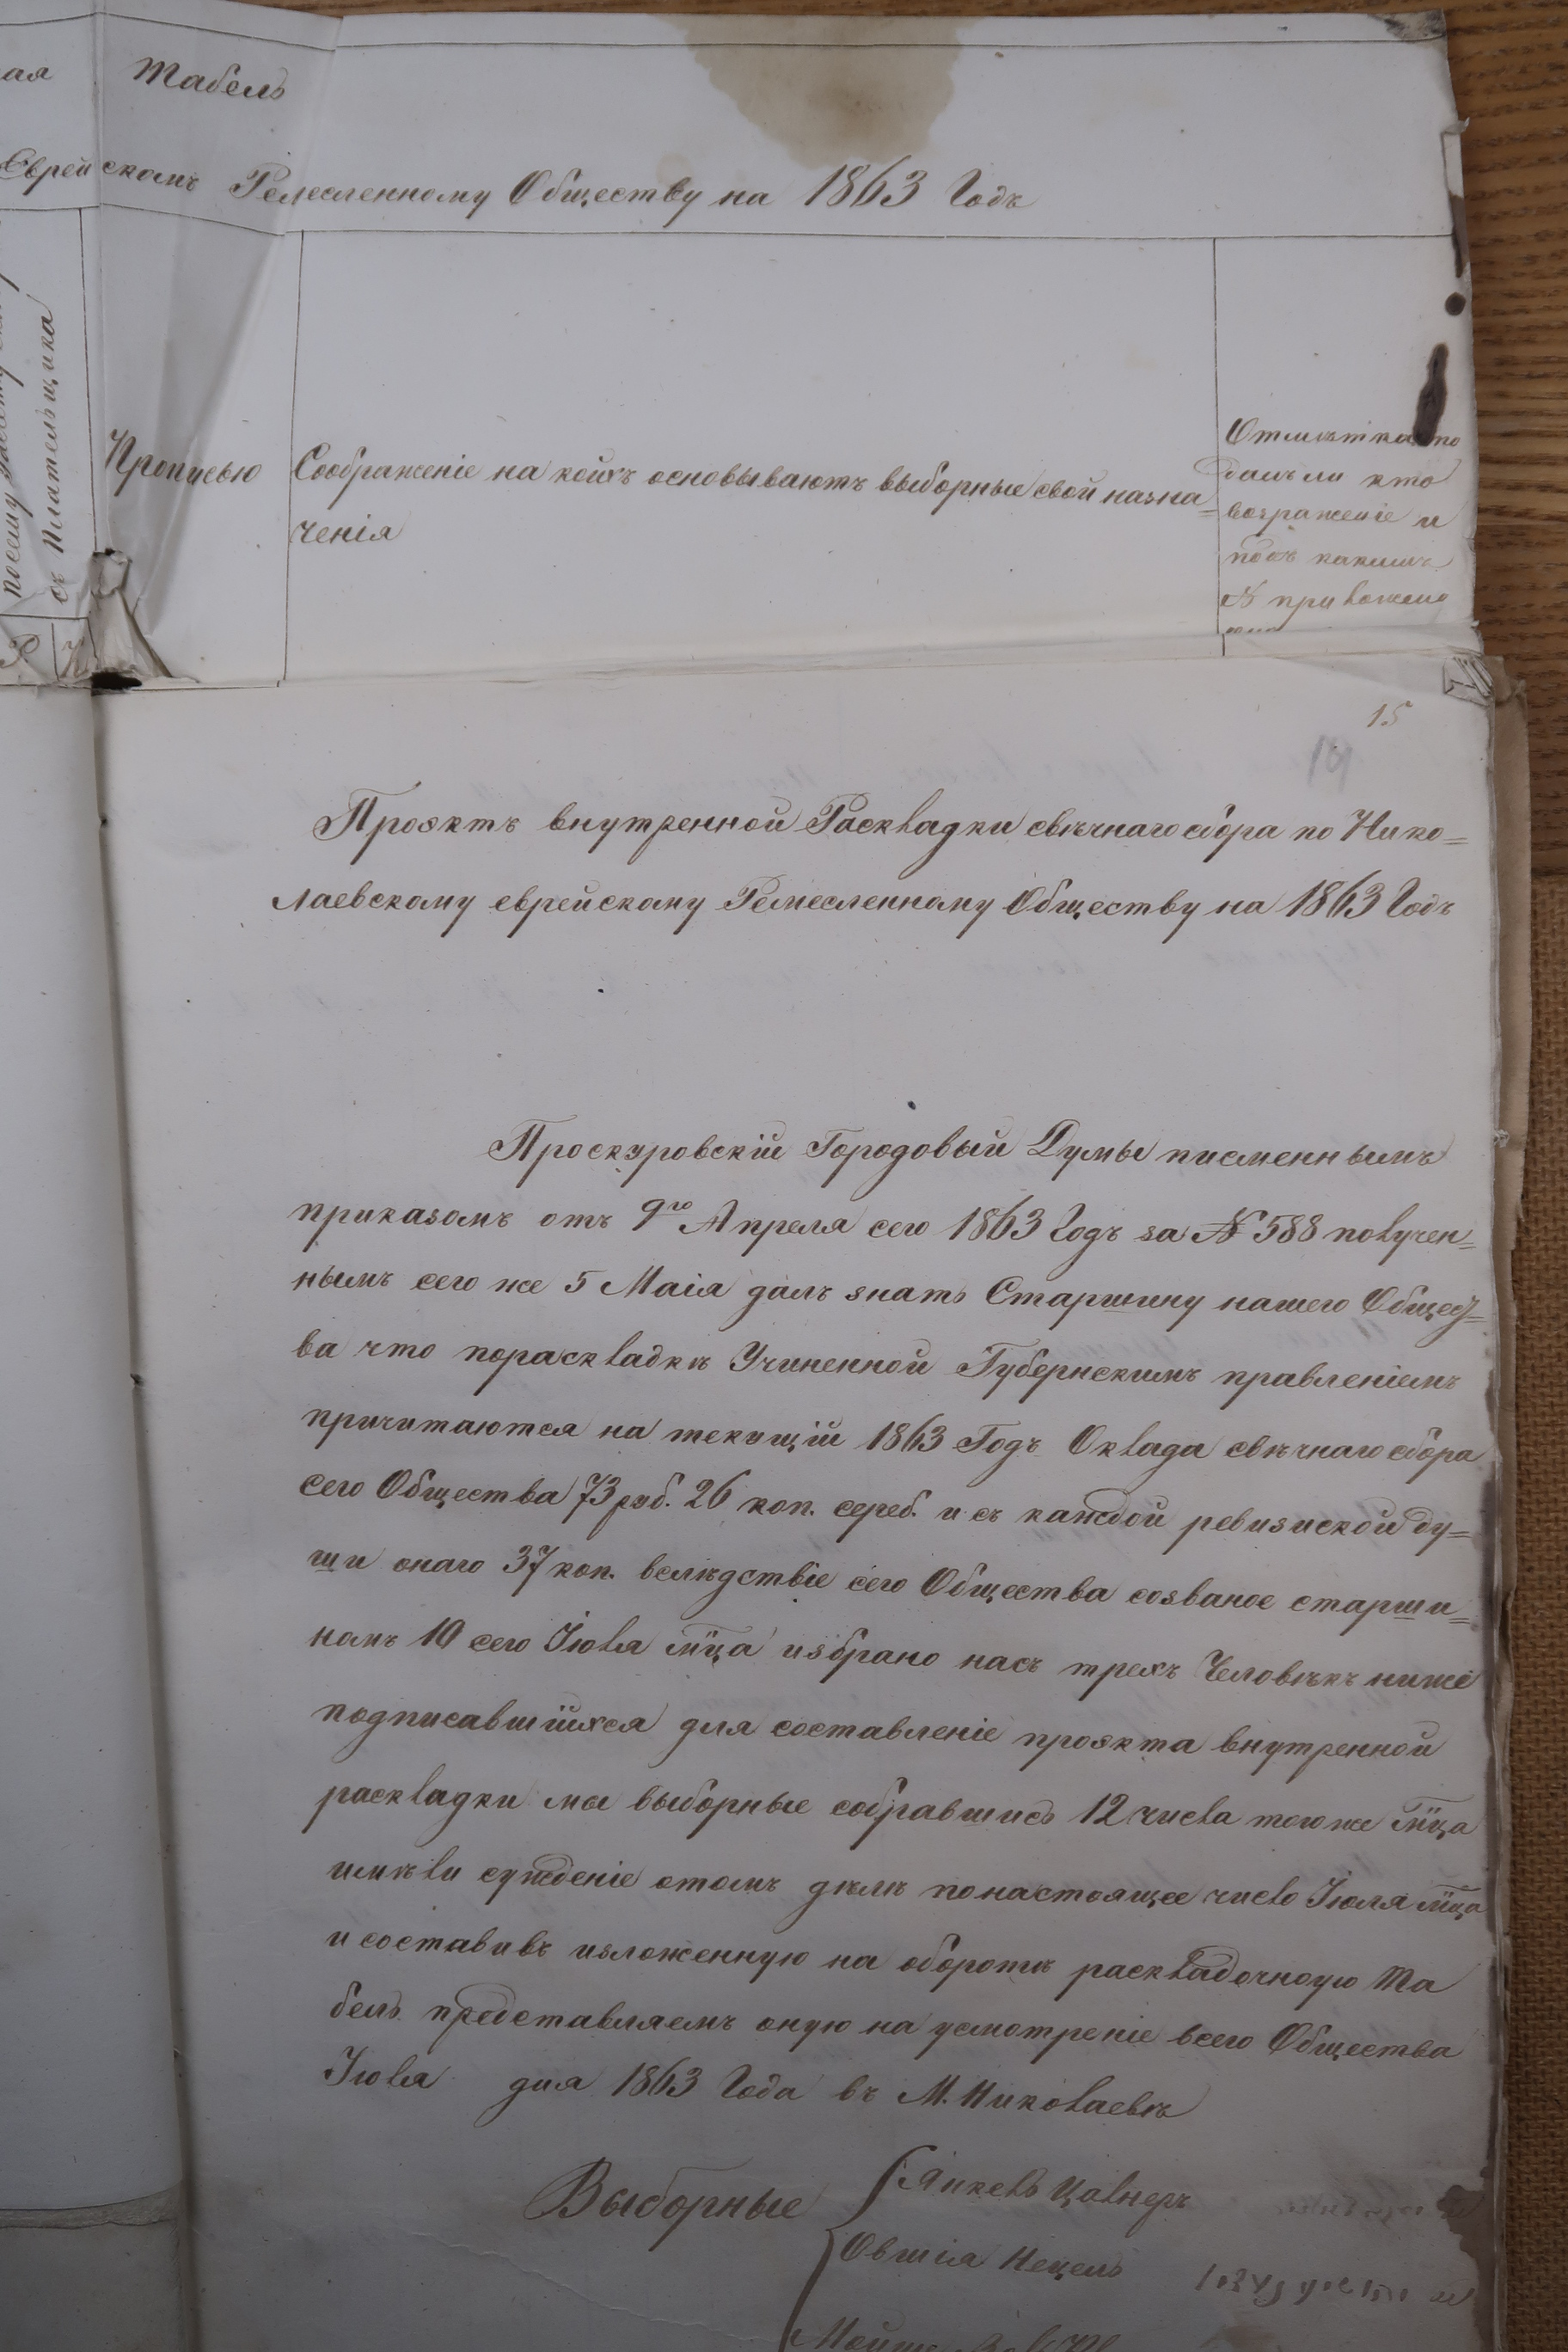 ая Табель
Еврейскомъ Ремесленному Обществу на 1863 Годъ
съ Плательщика
Прописью
Соображеніе на коихъ основываютъ выборные свои назна=
ченія
Отмѣтка
далъ ли кто
возраженіе и
подъ какимъ
№ приложено
Р
15
Проэктъ внутренной Раскладки свѣчнаго сбора по Нико=
лаевскому еврейскому Ремесленному Обществу на 1863 Годъ
Проскуровскій Городовый Думы писменнымъ
приказомъ отъ 9го Апреля сего 1863 Годъ за № 588 получен=
нымъ сего же 5 Маія далъ знать Старшину нашего Общест=
ва что пораскладкѣ Учиненной Губернскимъ правленіемъ
причитаются на текущій 1863 Годъ Оклада свѣчнаго сбора
сего Общества 73 руб. 26 коп. сереб. и съ каждой ревизиской ду=
ши онаго 37 коп. вслѣдствіе сего Общества созваное старши=
номъ 10 сего Іюля мц͠а избрано насъ трехъ Человѣкъ ниже
подписавшийхся для составленіе проэкта внутренной
раскладки мы выборные собравшись 12 числа тогоже мц͠а
имѣли сужденіе отомъ дѣлѣ понастоящее число Іюля мц͠а
и составивъ изложенную на оборотѣ раскладочную Та
бель представляемъ оную на усмотреніе всего Общества
Іюля дня 1863 Года въ М. Николаевѣ
Выборные
Янкель Цалнеръ
Овшія Нецель